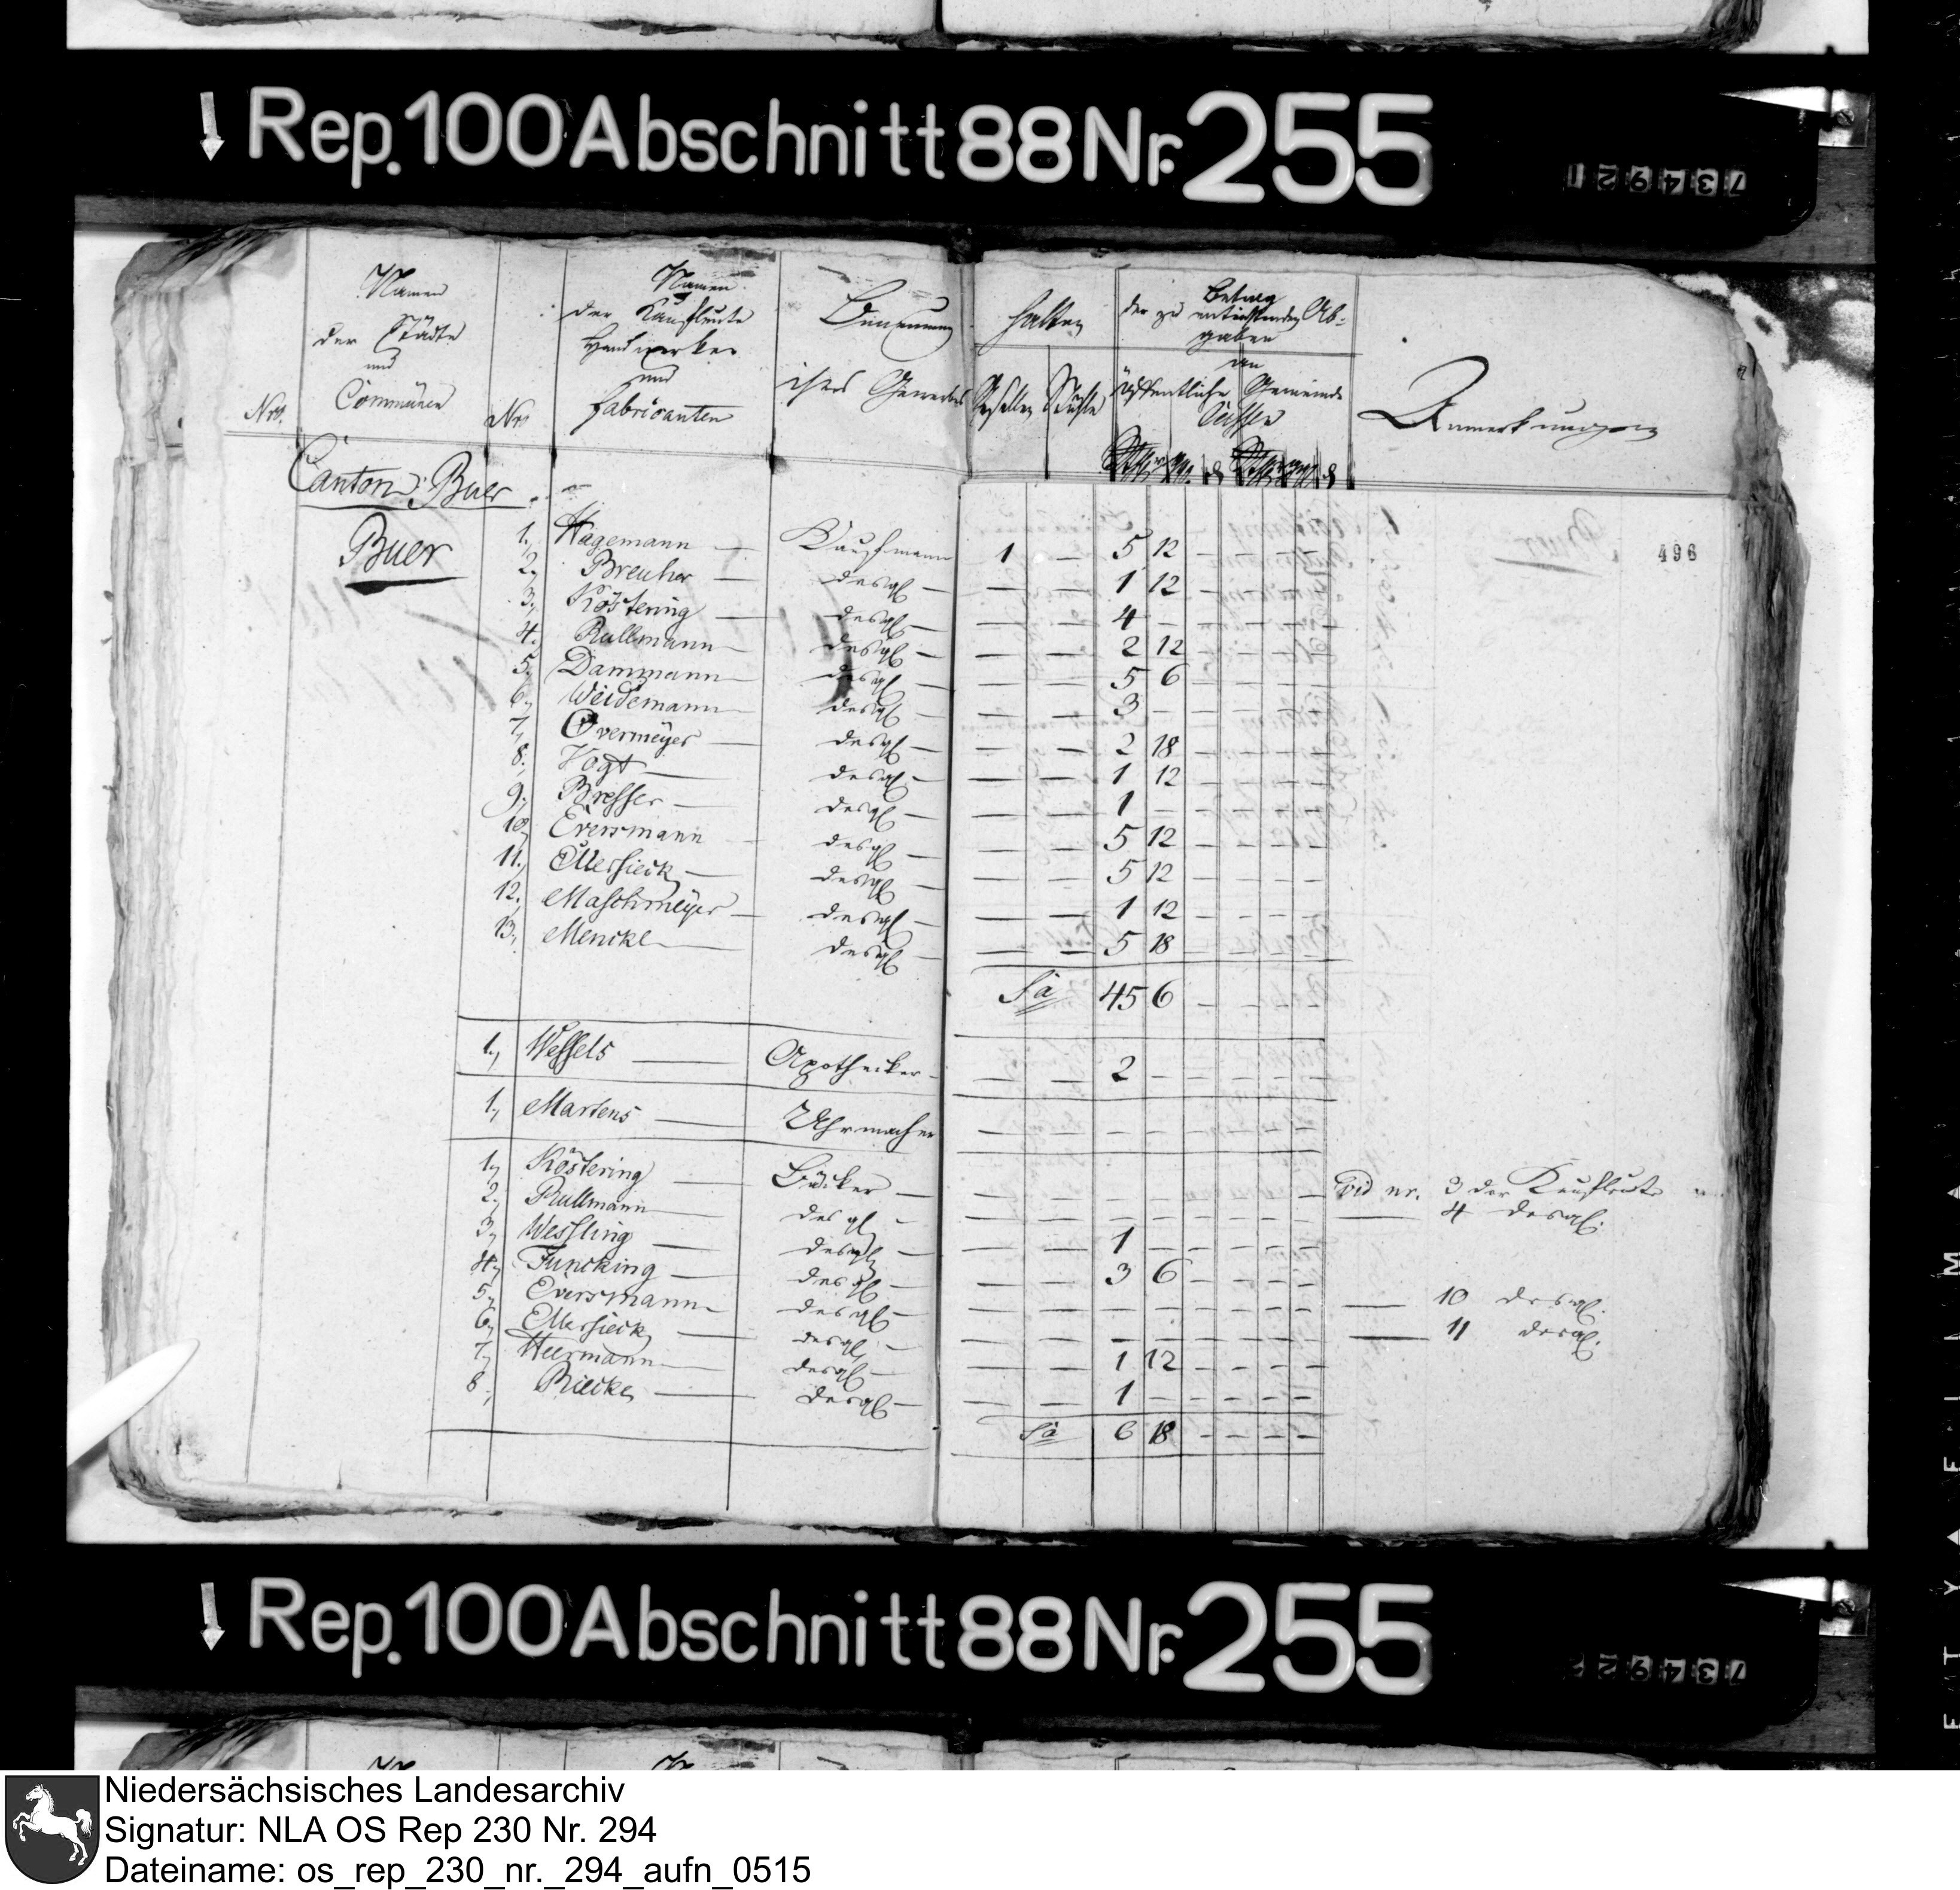 Rep. 100 Abschnitt 88 Nr. 255
734921
Nro. Namen der Städte und Communen
Nro Namen der Kaufleute Handwerker und Fabricanten
Benennung ihres Gewerbes
halten
Gesellen Stühle
Betrag der zu entrichtenden Abgaben
an
öffentliche Gemeinde
Cassen
Anmerkungen
Canton: Buer
Buer
496
1, Hagemann — Kaufmann 1 — 5 12 — — — —
2, Breuker — desgl — — — 1 12 — — — —
3, Köstering — desgl — — — 4 — — — — —
4, Rullmann — desgl — — — 2 12 — — — —
5, Dammann — desgl — — — 5 6 — — — —
6, Weidemann — desgl — — — 3 — — — — —
7, Overmeyer — desgl — — — 2 18 — — — —
8, Vogt — desgl — — — 1 12 — — — —
9, Bresser — desgl — — — 1 — — — — —
10, Eversmann — desgl — — — 5 12 — — — —
11, Ellersieck — desgl — — — 5 12 — — — —
12, Maschmeyer — desgl — — — 1 12 — — — —
13, Mencke — desgl — — — 5 18 — — — —
Sa 45 6 — — — —
1, Wessels — Apothecker — — — 2 — — — — —
1, Martens — Uhrmacher — — — — — — — —
1, Köstering — Bäcker — — — — — — — — — vid nr. 3 der Kaufleute
2, Rullmann — desgl — — — — — — — — — — 4 desgl.
3, Wessling — desgl — — — 1 — — — — —
4, Funcking — desgl — — — 3 6 — — — —
5, Eversmann — desgl — — — — — — — — — — 10 desgl.
6, Ellersieck — desgl — — — — — — — — — — 11 desgl.
7, Heermann — desgl — — — 1 12 — — — —
8, Riecke — desgl — — — 1 — — — — —
Sa 6 18 — — — —
Rep. 100 Abschnitt 88 Nr. 255
734922
Niedersächsisches Landesarchiv
Signatur: NLA OS Rep 230 Nr. 294
Dateiname: os_rep_230_nr._294_aufn_0515